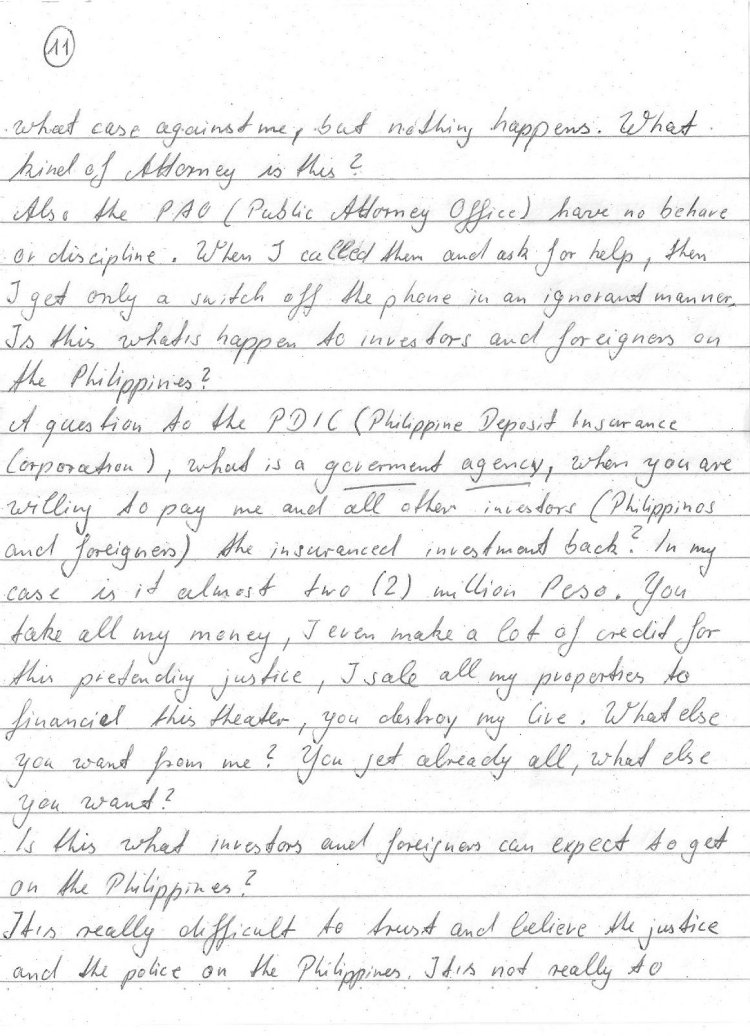 11
what case against me, but nothing happens. What
kind of Attorney is this?
Also the PAO (Public Attorney Office) have no behave
or discipline. When I called them and ask for help, then
I get only a switch off the phone in an ignorant manner.
Is this whatis happen to investors and foreigners on
the Philippines?
A question to the PDIC (Philippine Deposit Insurance
Corporation), what is a goverment agency, when you are
willing to pay me and all other investors (Philippinos
and foreigners) the insuranced investment back? In my
case is it almost two (2) million Peso. You
take all my money, I even make a lot of credit for
this pretending justice, I sale all my properties to
financiel this theater, you destroy my live. What else
you want from me? You get already all, what else
you want?
Is this what investors and foreigners can expect to get
on the Philippines?
It is really difficult to trust and believe the justice
and the police on the Philippines. It is not really to